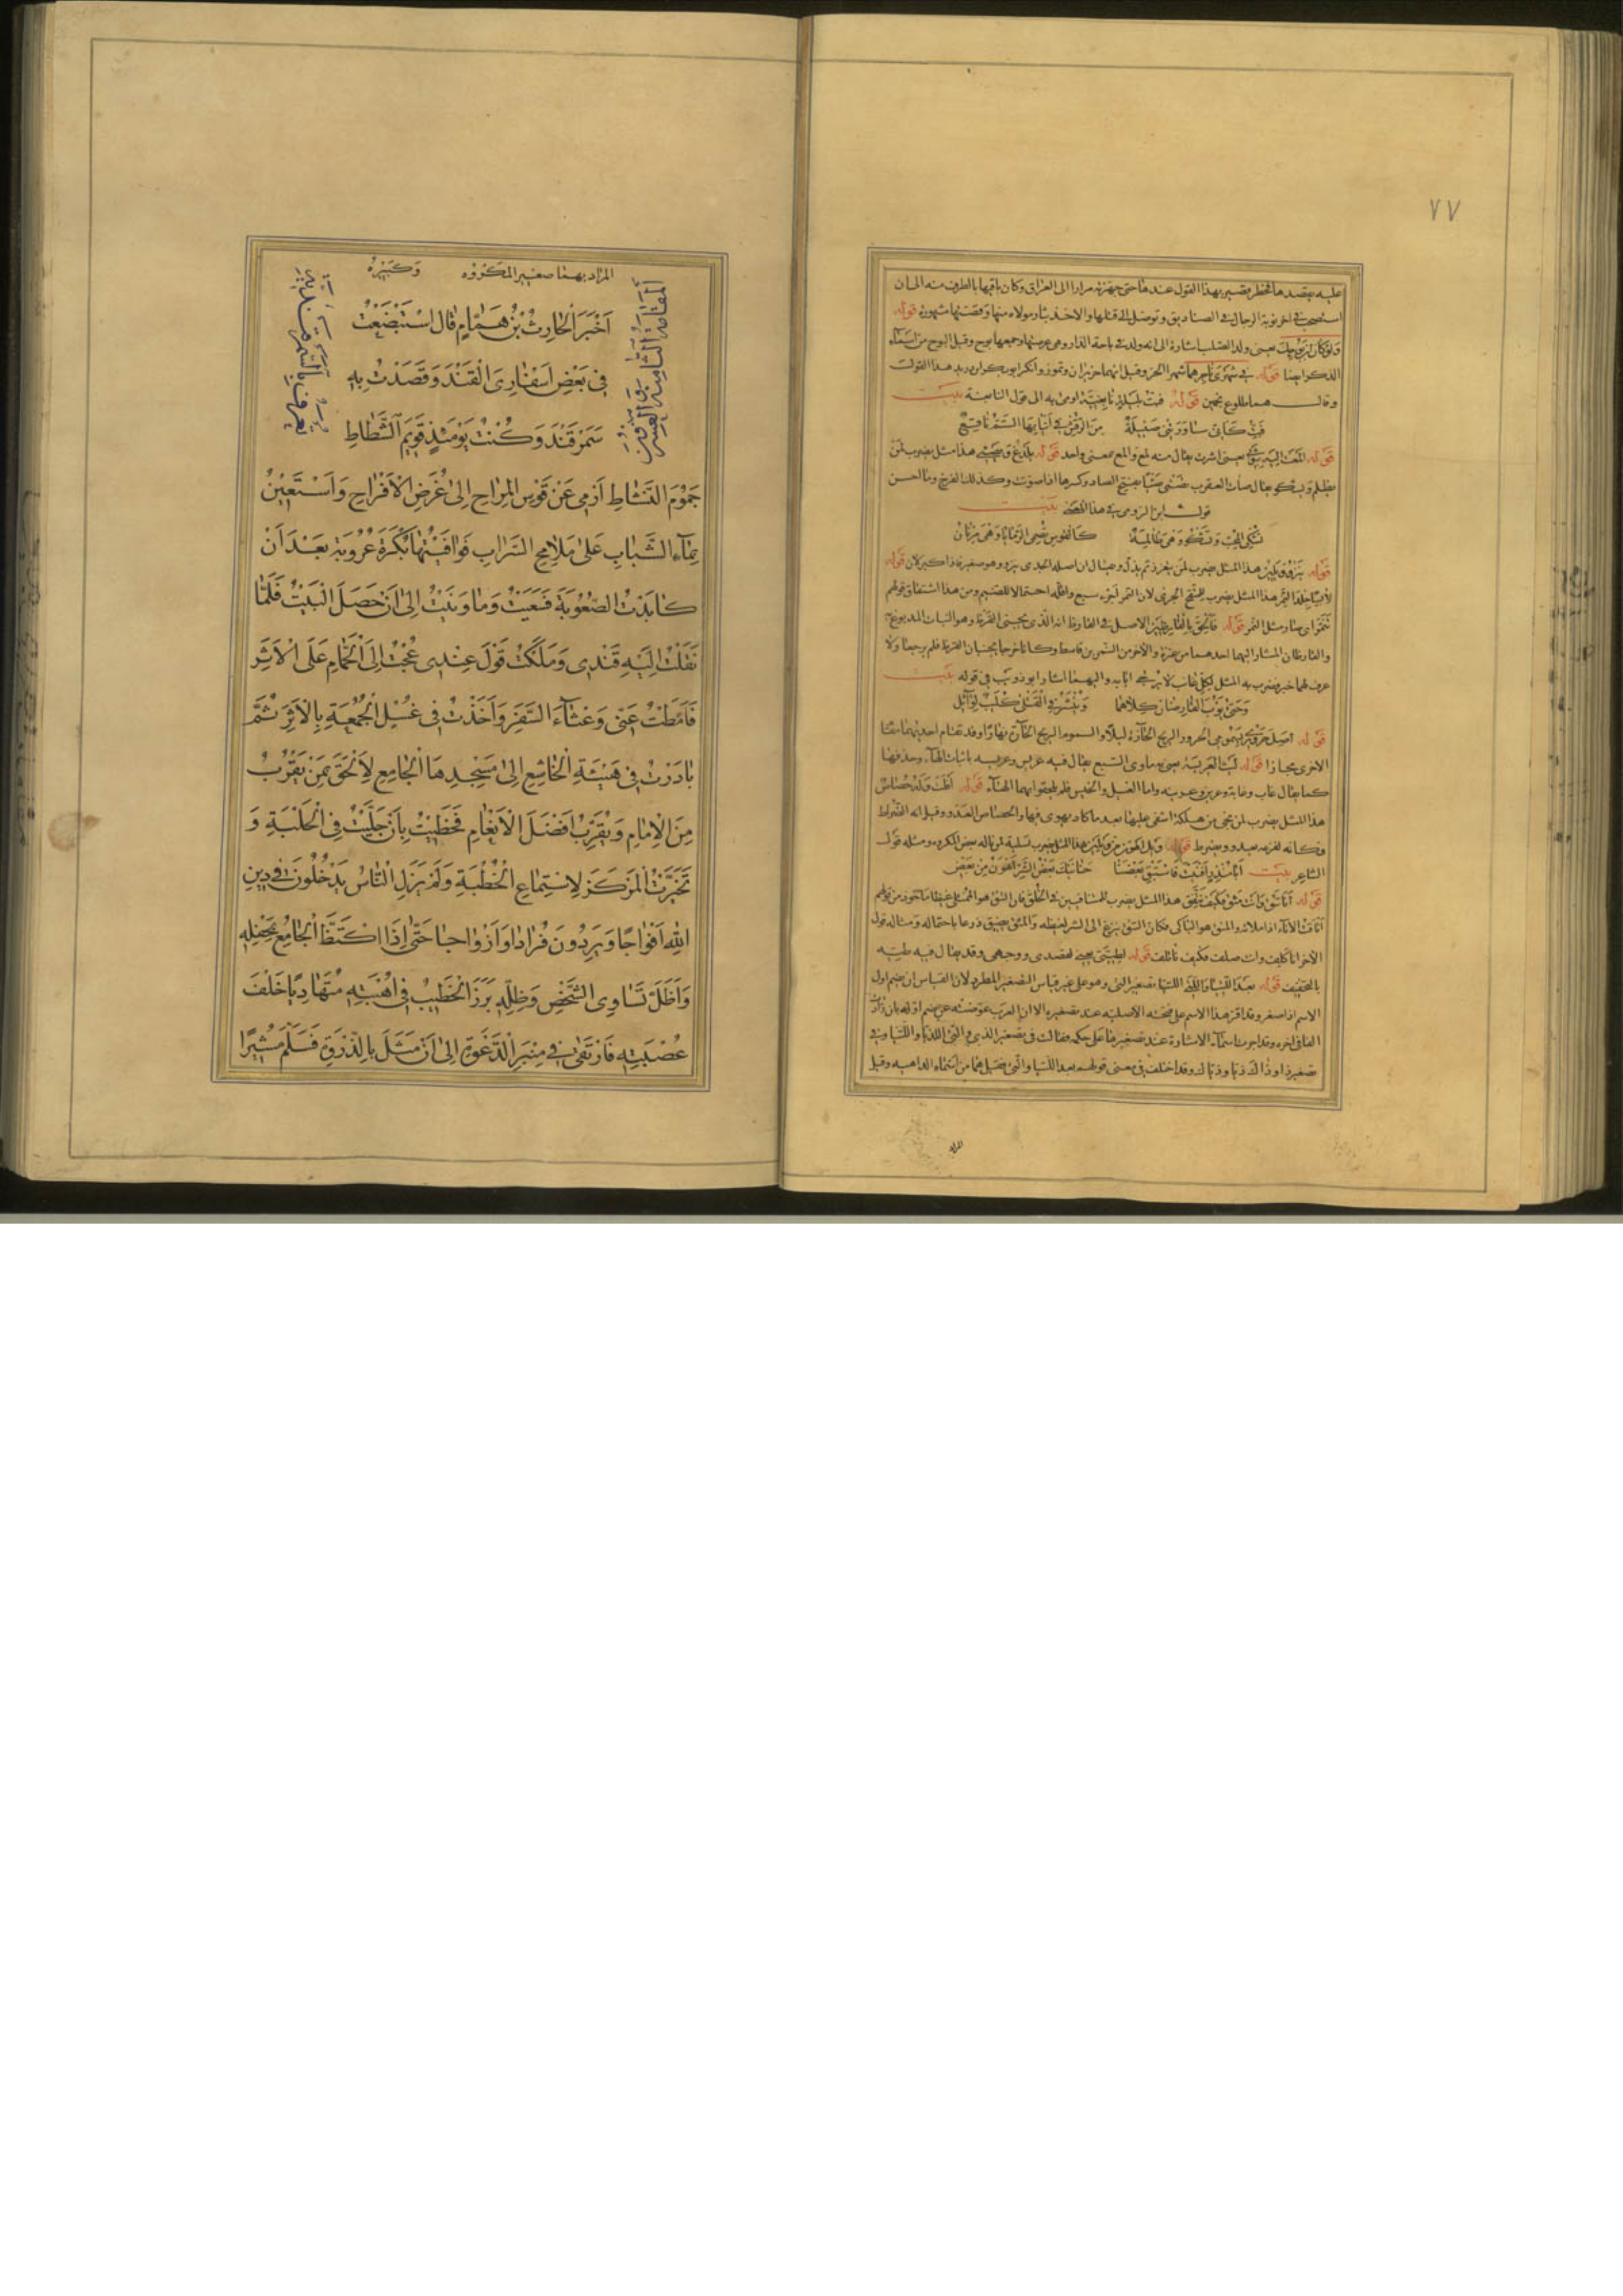 ٧٧
عليه بقصدها فخطر بقصير بهذا القول عندها حتى جهزته مرارا الى العراق وكان ياتيها بالطرف منه الى ان
استصحب في اخر نوبة الرجال في الصناديق وتوصل الى قتلها والاخذ بثار مولاه منها وقصتها مشهورة قوله
ولو كان ابن بوحك يعنى ولد الصلب اشارة الى انه ولد في باحة الدار وهى عرصتها وجمعها بوح وقيل البوح من اسماء
الذكر ايضا قوله في شهرى ناجر هما شهرا الحر وقيل انهما حزيران وتموز وانكر ابو بكر ابن دريد هذا القول
وقال هما طلوع نجمين قوله فبت بليلة نابغية اومئ به الى قول النابغة بيت
فبت كانى ساورتنى ضئيلة من الرقش في انيابها السم ناقع
قوله المعت اليه بثوبى يعنى اشرت يقال منه لمع والمع بمعنى واحد قوله يلدغ ويصئى هذا مثل يضرب لمن
يظلم ويشكو يقال صأت العقرب تصئى صئيا بفتح الصاد وكسرها اذا صوتت وكذلك الفرخ وما احسن
قول ابن الرومى في هذا المعنى بيت
تشكى المحب وتشكو وهى ظالمة كالقوس تصمى الرمايا وهى مرنان
قوله نزو قلبى هذا المثل يضرب لمن يعزز ثم يذل ويقال ان اصله الجدى ينزو وهو صغير فاذا كبر لان قوله
لابسا جلد النمر هذا المثل يضرب للمتقح الجرئ لان النمر اجرء سبع واقله احتمالا للضيم ومن هذا اشتقاق قولهم
تنمر اى صار مثل النمر قوله فالحق بالقارظين الاصل في القارظ انه الذى يجتنى القرظ وهو النبات المدبوغ به
والقارظان المشار اليهما احدهما من عنزة والاخر من النمر بن قاسط وكانا خرجا يجتنيان القرظ فلم يرجعا ولا
عرف لهما خبر فضرب به المثل لكل غائب لا يرتجى ايابه واليهما اشار ابو ذويب في قوله بيت
وحتى يؤب القارظان كلاهما وينشر في القتلى كليب لوائل
قوله اصل حرقتى بسمومى الحرور الريح الحارة ليلا والسموم الريح الحارة نهارا وقد تقام احديهما مقام
الاخرى مجازا قوله ليث العريسة يعنى به ماوى السبع يقال فيه عريس وعريسه باثبات الهاء وحذفها
كما يقال غاب وغابة وعرين وعرينة واما الغيل والخيس فلم يلحقوا بهما الهاء قوله افلت وله حصاص
هذا المثل يضرب لمن نجى من هلكة اشفى عليها بعد ما كاد يهوى فيها والحصاص العدو وقيل انه الضراط
وكانه لفزعه يعدو ويضرط قوله ويل اهون من ويلين هذا المثل يضرب تسلية لمن ناله بعض المكروه ومثله قول
الشاعر بيت ابا منذر افنيت فاستبق بعضنا حنانيك بعض الشر اهون من بعض
قوله انا تئق وانت مئق فكيف نتفق هذا المثل يضرب للمتنافيين في الخلق فان التئق هو الممتلئ غيظا ماخوذ من قولهم
اتاقت الاناء اذا ملاته والمئق هو الباكى فكان التئق ينزع الى الشر لغيظه والمئق يضيق ذرعا باحتماله ومثاله قول
الاخر انا كلف وانت صلف فكيف ناتلف قوله لطيتى يعنى لقصدى ووجهى وقد يقال فيه طية
بالتخفيف قوله بعد اللتيا والتى اللتيا تصغير التى وهو على غير قياس التصغير المطرد لان القياس ان يضم اول
الاسم اذا صغر وقد اقر هذا الاسم على فتحته الاصلية عند تصغيره الا ان العرب عوضته عن ضم اوله بان زادت
الفا فى اخره وقد اجرت اسماء الاشارة عند تصغيرها على حكمه فقالت فى تصغير الذى والتى اللذيا واللتيا وفي
تصغير ذا وذاك ذيا وذياك وقد اختلف فى معنى قولهم بعد اللتيا والتى فقيل هما من اسماء الداهية وقيل
المراد
المراد بهما صغير المكروه وكبيره
المقامة الثامنة والعشرون
وتعرف بالسمرقندية
اَخْبَرَ الْحَارِثُ بْنُ هَمَّامٍ قَالَ اسْتَبْضَعْتُ
فِى بَعْضِ اَسْفَارِىَ الْقَنْدَ وَقَصَدْتُ بِهِ
سَمَرْقَنْدَ وَكُنْتُ يَوْمَئِذٍ قَوِيمَ الشَّطَاطِ
جَمُوْمَ النَّشَاطِ اَرْمِى عَنْ قَوْسِ الْمِرَاحِ اِلىٰ غَرَضِ الْاَفْرَاحِ وَاَسْتَعِيْنُ
بِمَآءِ الشَّبَابِ عَلىٰ مَلَامِحِ السَّرَابِ فَوَافَيْتُهَا بُكْرَةَ عَرُوْبَةَ بَعْدَ اَنْ
كَابَدْتُ الصُّعُوْبَةَ فَسَعَيْتُ وَمَا وَنَيْتُ اِلىٰ اَنْ حَصَلَ الْبَيْتُ فَلَمَّا
نَقَلْتُ اِلَيْهِ قَنْدِى وَمَلَكْتُ قَوْلَ عِنْدِى عُجْتُ اِلَى الْحَمَّامِ عَلَى الْاَثَرِ
فَاَمَطْتُ عَنِّى وَعْثَآءَ السَّفَرِ وَاَخَذْتُ فِى غُسْلِ الْجُمُعَةِ بِالْاَثَرِ ثُمَّ
بَادَرْتُ فِى هَيْئَةِ الْخَاشِعِ اِلىٰ مَسْجِدِهَا الْجَامِعِ لِاَلْحَقَ بِمَنْ يَقْرُبُ
مِنَ الْاِمَامِ وَيُقَرِّبُ اَفْضَلَ الْاَنْعَامِ فَحَظِيْتُ بِاَنْ جَلَّيْتُ فِى الْحَلْبَةِ وَ
تَخَيَّرْتُ الْمَرْكَزَ لِاسْتِمَاعِ الْخُطْبَةِ وَلَمْ يَزَلِ النَّاسُ يَدْخُلُوْنَ فِى دِيْنِ
اللهِ اَفْوَاجًا وَيَرِدُوْنَ فُرَادًا وَاَزْوَاجًا حَتّٰى اِذَا اكْتَظَّ الْجَامِعُ بِحَفْلِهِ
وَاَظَلَّ تَسَاوِى الشَّخْصِ وَظِلِّهِ بَرَزَ الْخَطِيْبُ فِى اُهْبَتِهِ مُتَهَادِيًا خَلْفَ
عُصْبَتِهِ فَارْتَقىٰ فِى مِنْبَرِ الدَّعْوَةِ اِلىٰ اَنْ مَثَلَ بِالذِّرْوَةِ فَسَلَّمَ مُشِيْرًا